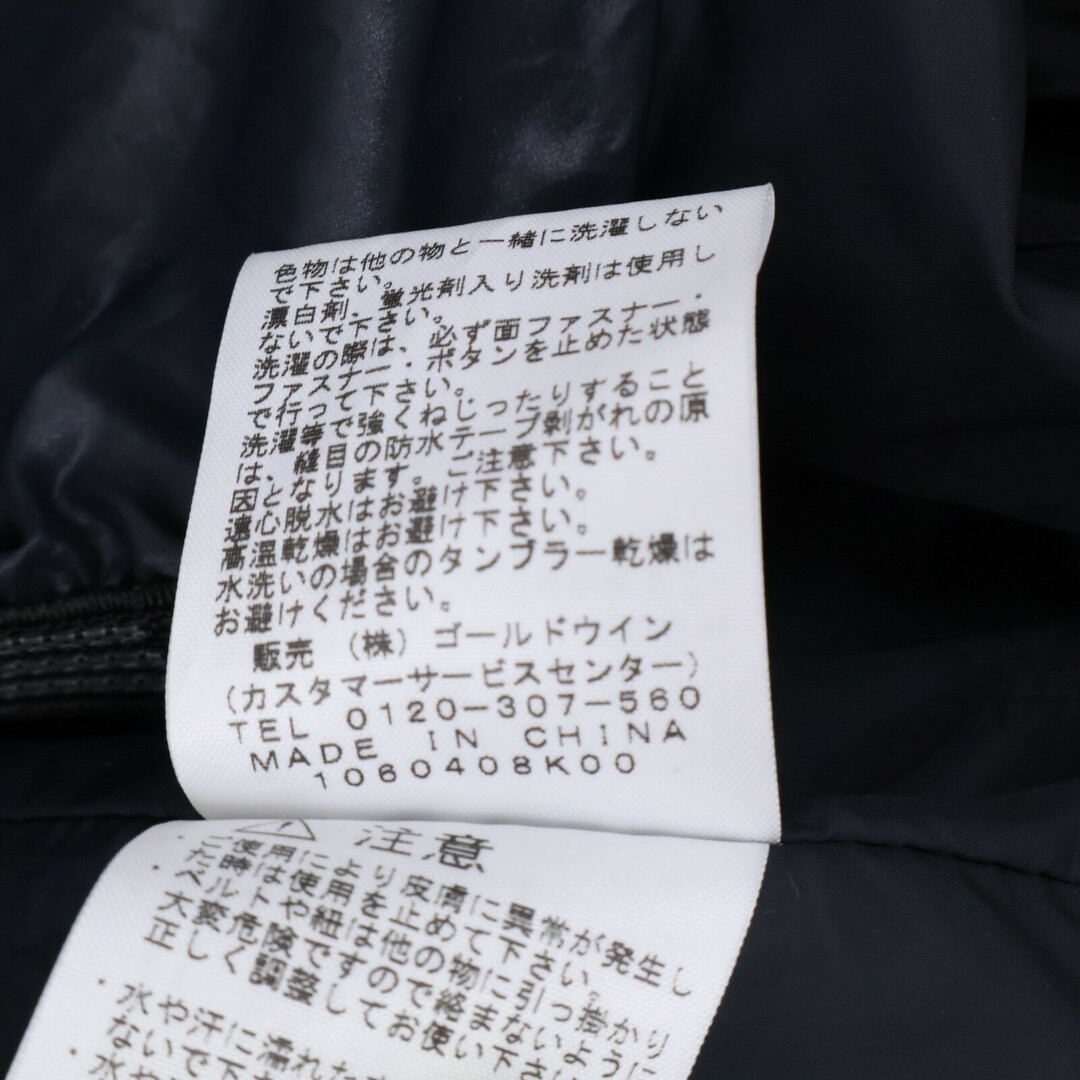 色物は他の物と一緒に洗濯しない
で下さい。
漂白剤、蛍光剤入り洗剤は使用し
ないで下さい。
洗濯の際は、必ず面ファスナー・
ファスナー・ボタンを止めた状態
で行って下さい。
洗濯等で強くねじったりすること
は、縫目の防水テープ剥がれの原
因となります。ご注意下さい。
遠心脱水はお避け下さい。
高温乾燥はお避け下さい。
水洗いの場合のタンブラー乾燥は
お避けください。
販売 (株) ゴールドウイン
(カスタマーサービスセンター)
TEL 0120-307-560
MADE IN CHINA
1060408K00
注意
・ご使用により皮膚に異常が発生し
た時は使用を止めて下さい。
・ベルトや紐は他の物に引っ掛かり
大変危険ですので絡まないように
正しく調整してお使い下さい
・水や汗に濡れた
ないで下
・水や